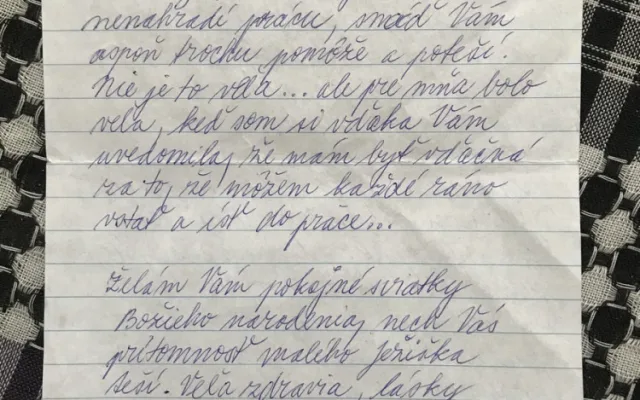 nenahradí prácu, snáď Vám
aspoň trochu pomôže a poteší.
Nie je to veľa... ale pre mňa bolo
veľa, keď som si vďaka Vám
uvedomila, že mám byť vďačná
za to, že môžem každé ráno
vstať a ísť do práce...
Želám Vám pokojné sviatky
Božieho narodenia, nech Vás
prítomnosť malého Ježiška
teší. Veľa zdravia, lásky